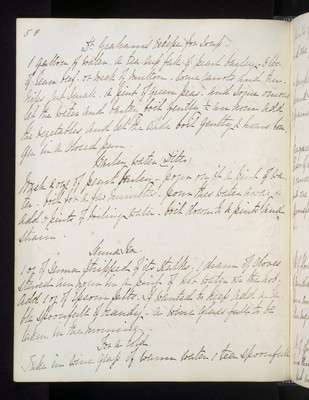 54
Dr. Graham's Recipe for Soup.
1 gallon of water. a tea cup full of pearl barley. 3 lbs
of lean beef. or neck of mutton. Some carrots and tur-
nips cut small. a pint of green peas. and some onions
let the water and barley boil gently ½ an hour add
the vegetables and let the boil gently hours lon
ger in a closed pan
Barley Water
Wash 2 oz of pearl barley. pour on it a pint of wa
ter. boil for a few minutes. pour this water away &
add 4 pints of boiling water. boil down to 2 pints and
strain.
Senna Tea.
1 oz of Senna stripped of its stalks. 1 dram of cloves
stewed an hour in a pint of hot water.
add 1 oz of Epsom Salts. if wanted to keep add a ta
ble spoonfull of brandy. a wine glass full to be
taken in the morning.
For a cold
Take in wine glass of warm water 1 tea spoonfull